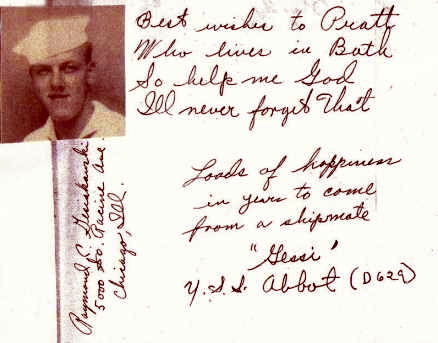 Best wishes to Pratt
Who lives in Bath
So help me God
Ill never forget That
Loads of happiness
in years to come
from a shipmate
"Gessi"
U.S.S. Abbot (D629)
Raymond C.
5000 So. Racine Ave.
Chicago, Ill.